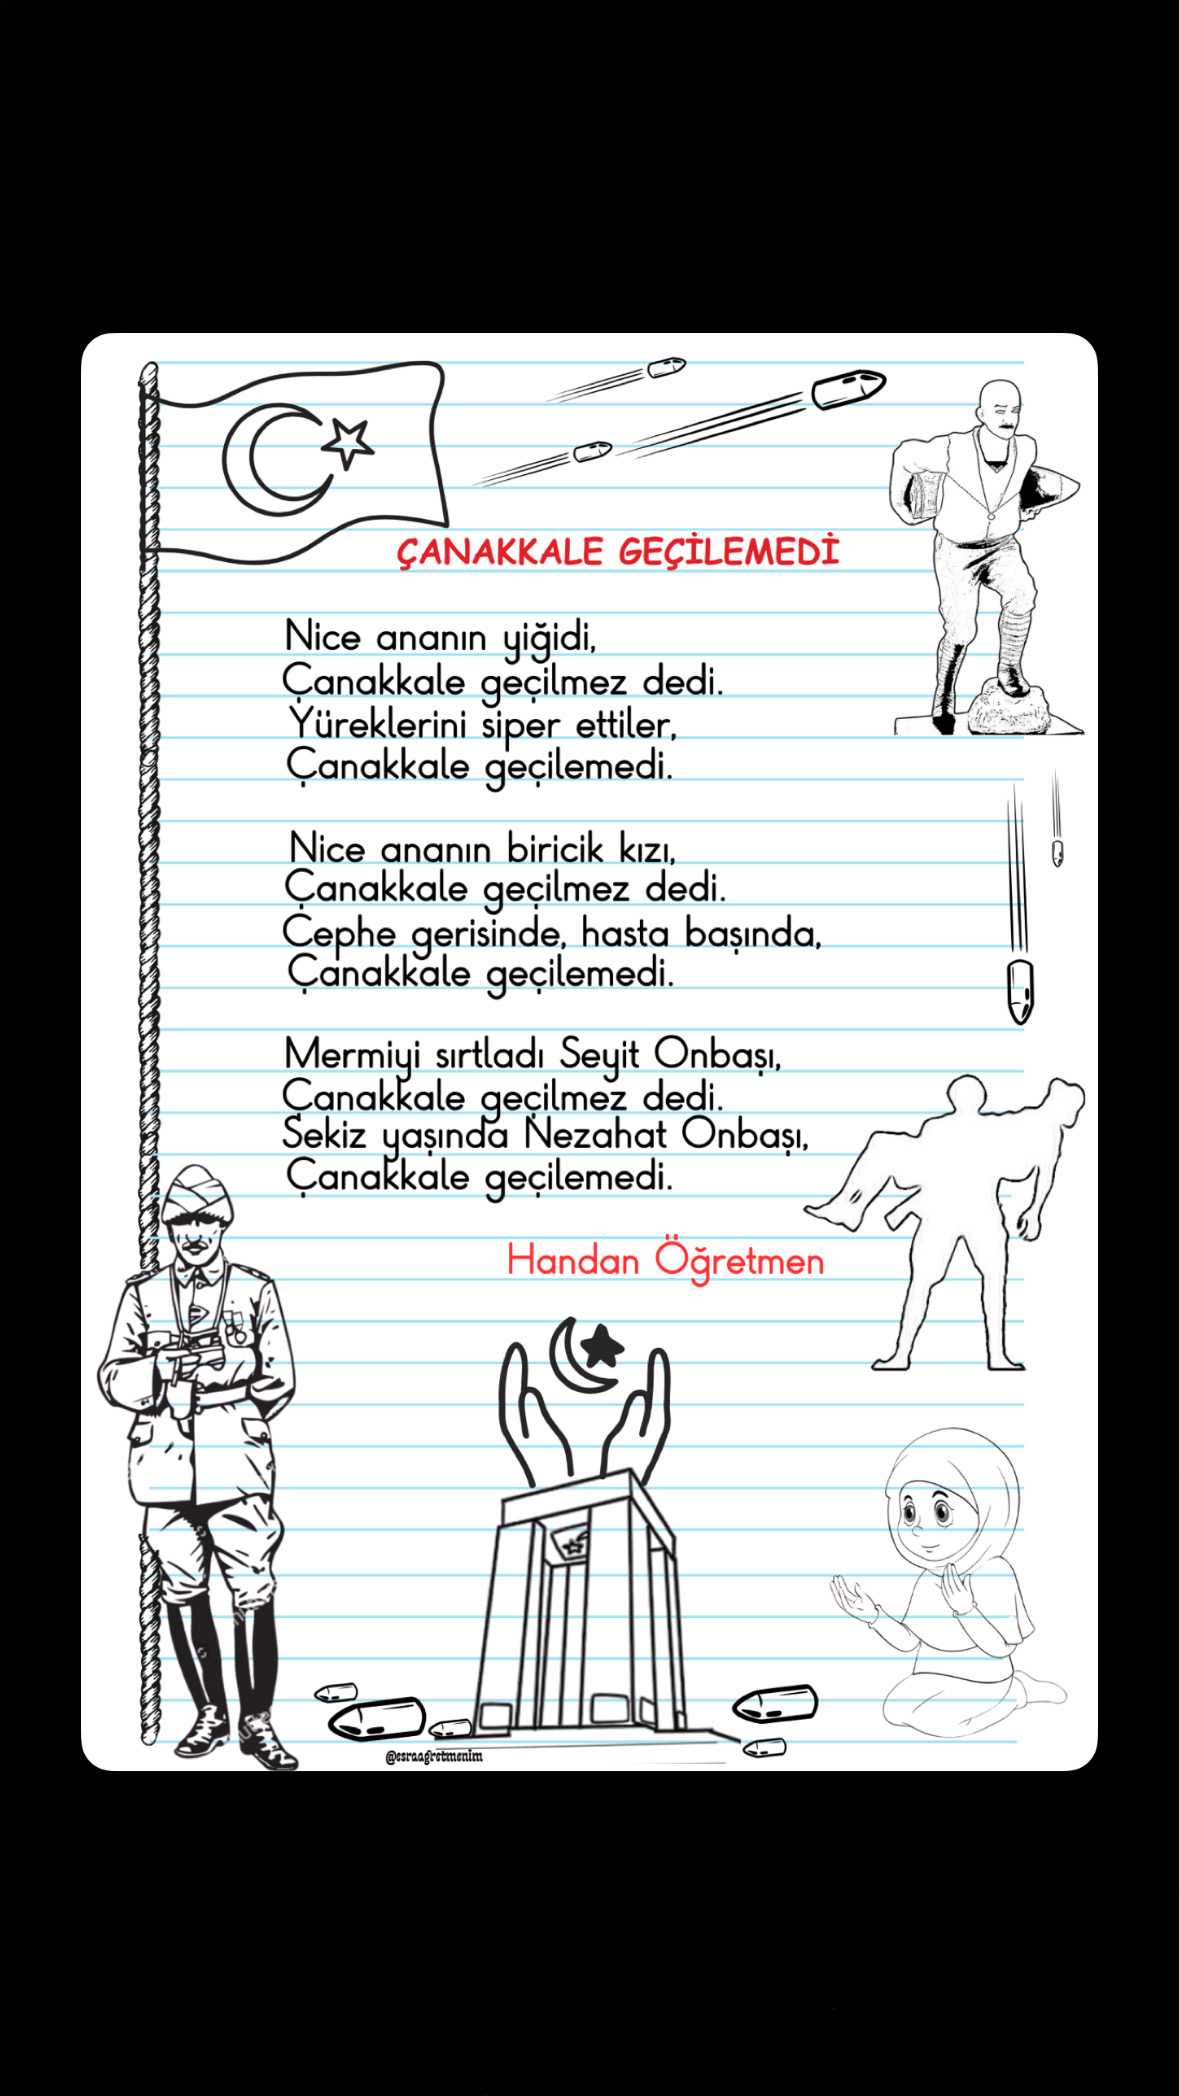 ÇANAKKALE GEÇİLEMEDİ
Nice ananın yiğidi,
Çanakkale geçilmez dedi.
Yüreklerini siper ettiler,
Çanakkale geçilemedi.
Nice ananın biricik kızı,
Çanakkale geçilmez dedi.
Cephe gerisinde, hasta başında,
Çanakkale geçilemedi.
Mermiyi sırtladı Seyit Onbaşı,
Çanakkale geçilmez dedi.
Sekiz yaşında Nezahat Onbaşı,
Çanakkale geçilemedi.
Handan Öğretmen
@esraagretmenim